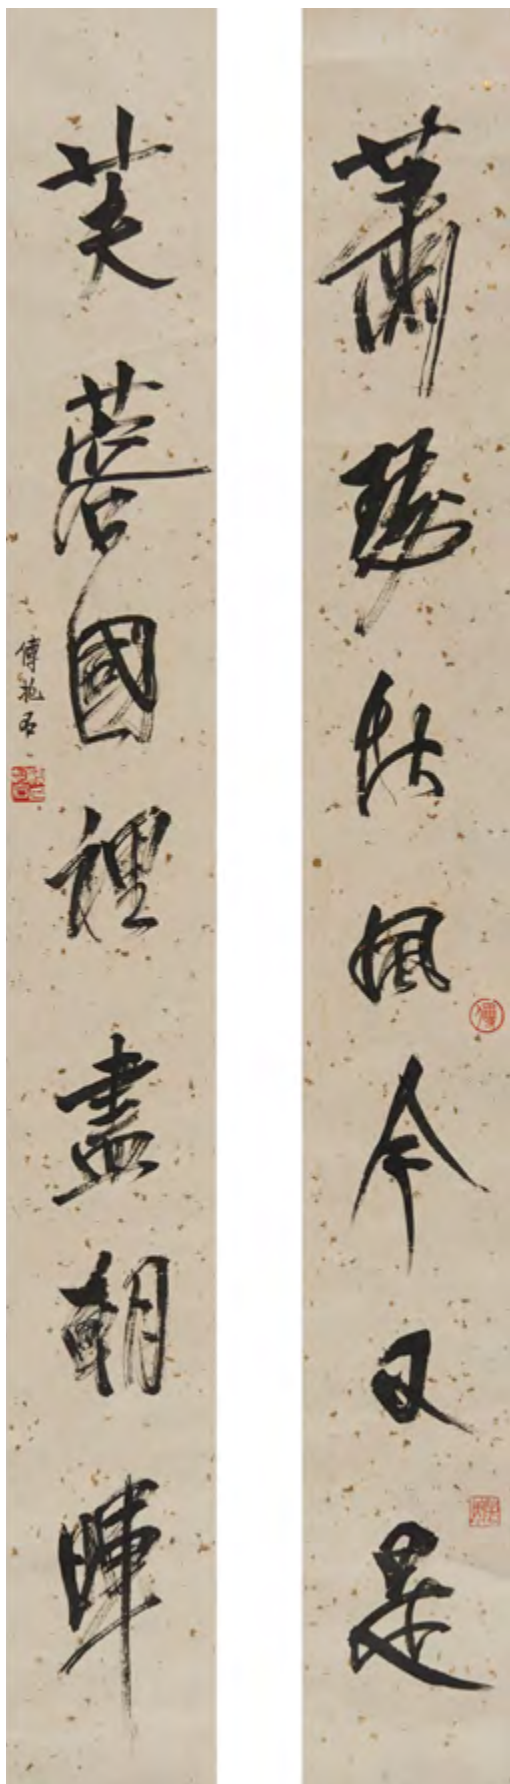 蕭瑟秋風今又是
芙蓉國裡盡朝暉
傅抱石
傅